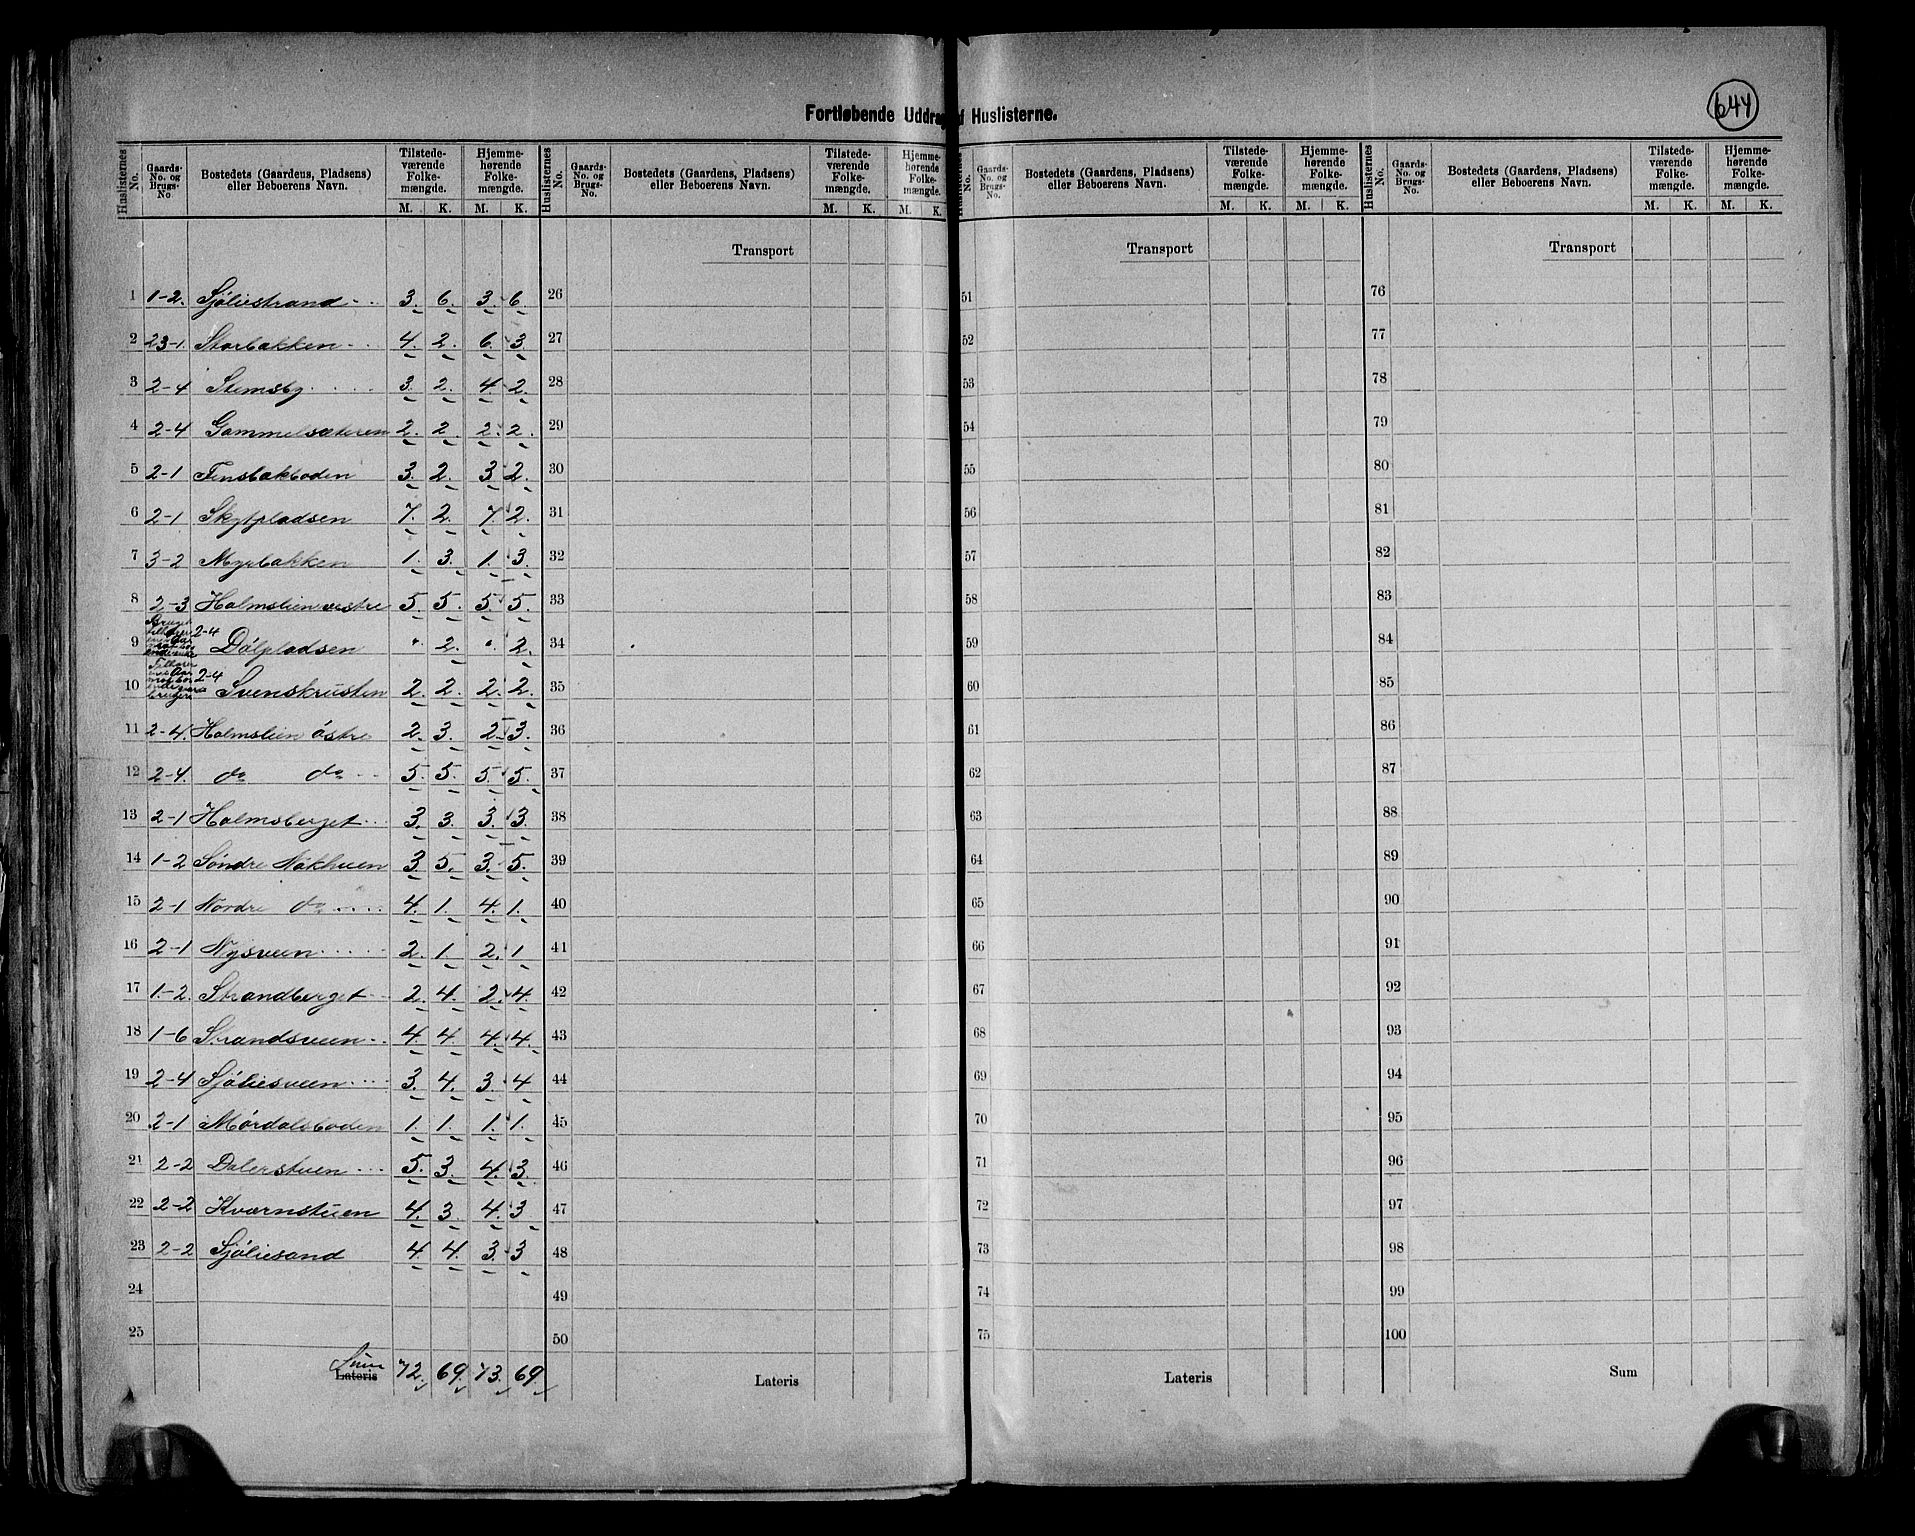 644
Fortløbende Uddrag af Huslisterne.
Huslisternes No. | Gaards-No. og Brugs-No. | Bostedets (Gaardens, Pladsens) eller Beboerens Navn. | Tilstedeværende Folkemængde. M. K. | Hjemmehørende Folkemængde. M. K.
1 1-2. Sjøliestrand 3. 6. 3. 6.
2 23-1. Storbakken 4. 2. 6. 3.
3 2-4 Stemsby 3. 2. 4. 2.
4 2-4 Gammelsæteren 2. 2. 2. 2.
5 2-1 Finstakboden 3. 2. 3. 2.
6 2-1 Skytpladsen 7. 2. 7. 2.
7 3-2 Myrbakken 1. 3. 1. 3.
8 2-3 Holmslien vestre 5. 5. 5. 5.
9 2-4 Dólpladsen " 2. " 2.
10 2-4 Svenskrusten 2. 2. 2. 2.
11 2-4. Holmslien óstre 2. 3. 2. 3.
12 2-4. do do 5. 5. 5. 5.
13 2-1 Holmsberget 3. 3. 3. 3.
14 1-2 Søndre Nökhuen 3. 5. 3. 5.
15 2-1 Nordre do 4. 1. 4. 1.
16 2-1 Nysveen 2. 1. 2. 1
17 1-2. Strandberget 2. 4. 2. 4.
18 1-6 Strandsveen 4. 4. 4. 4.
19 2-4 Sjøliesveen 3. 4. 3. 4
20 2-1 Mørdalsboden 1. 1. 1. 1.
21 2-2 Dalerstuen 5. 3. 4. 3.
22 2-2 Kværnstuen 4. 3. 4. 3
23 2-2 Sjøliesand 4. 4. 3. 3
24
25
Sum
Lateris 72. 69. 73. 69.
Huslisternes No. | Gaards-No. og Brugs-No. | Bostedets (Gaardens, Pladsens) eller Beboerens Navn. | Tilstedeværende Folkemængde. M. K. | Hjemmehørende Folkemængde. M. K.
Transport
26
27
28
29
30
31
32
33
34
35
36
37
38
39
40
41
42
43
44
45
46
47
48
49
50
Lateris
Huslisternes No. | Gaards-No. og Brugs-No. | Bostedets (Gaardens, Pladsens) eller Beboerens Navn. | Tilstedeværende Folkemængde. M. K. | Hjemmehørende Folkemængde. M. K.
Transport
51
52
53
54
55
56
57
58
59
60
61
62
63
64
65
66
67
68
69
70
71
72
73
74
75
Lateris
Huslisternes No. | Gaards-No. og Brugs-No. | Bostedets (Gaardens, Pladsens) eller Beboerens Navn. | Tilstedeværende Folkemængde. M. K. | Hjemmehørende Folkemængde. M. K.
Transport
76
77
78
79
80
81
82
83
84
85
86
87
88
89
90
91
92
93
94
95
96
97
98
99
100
Sum